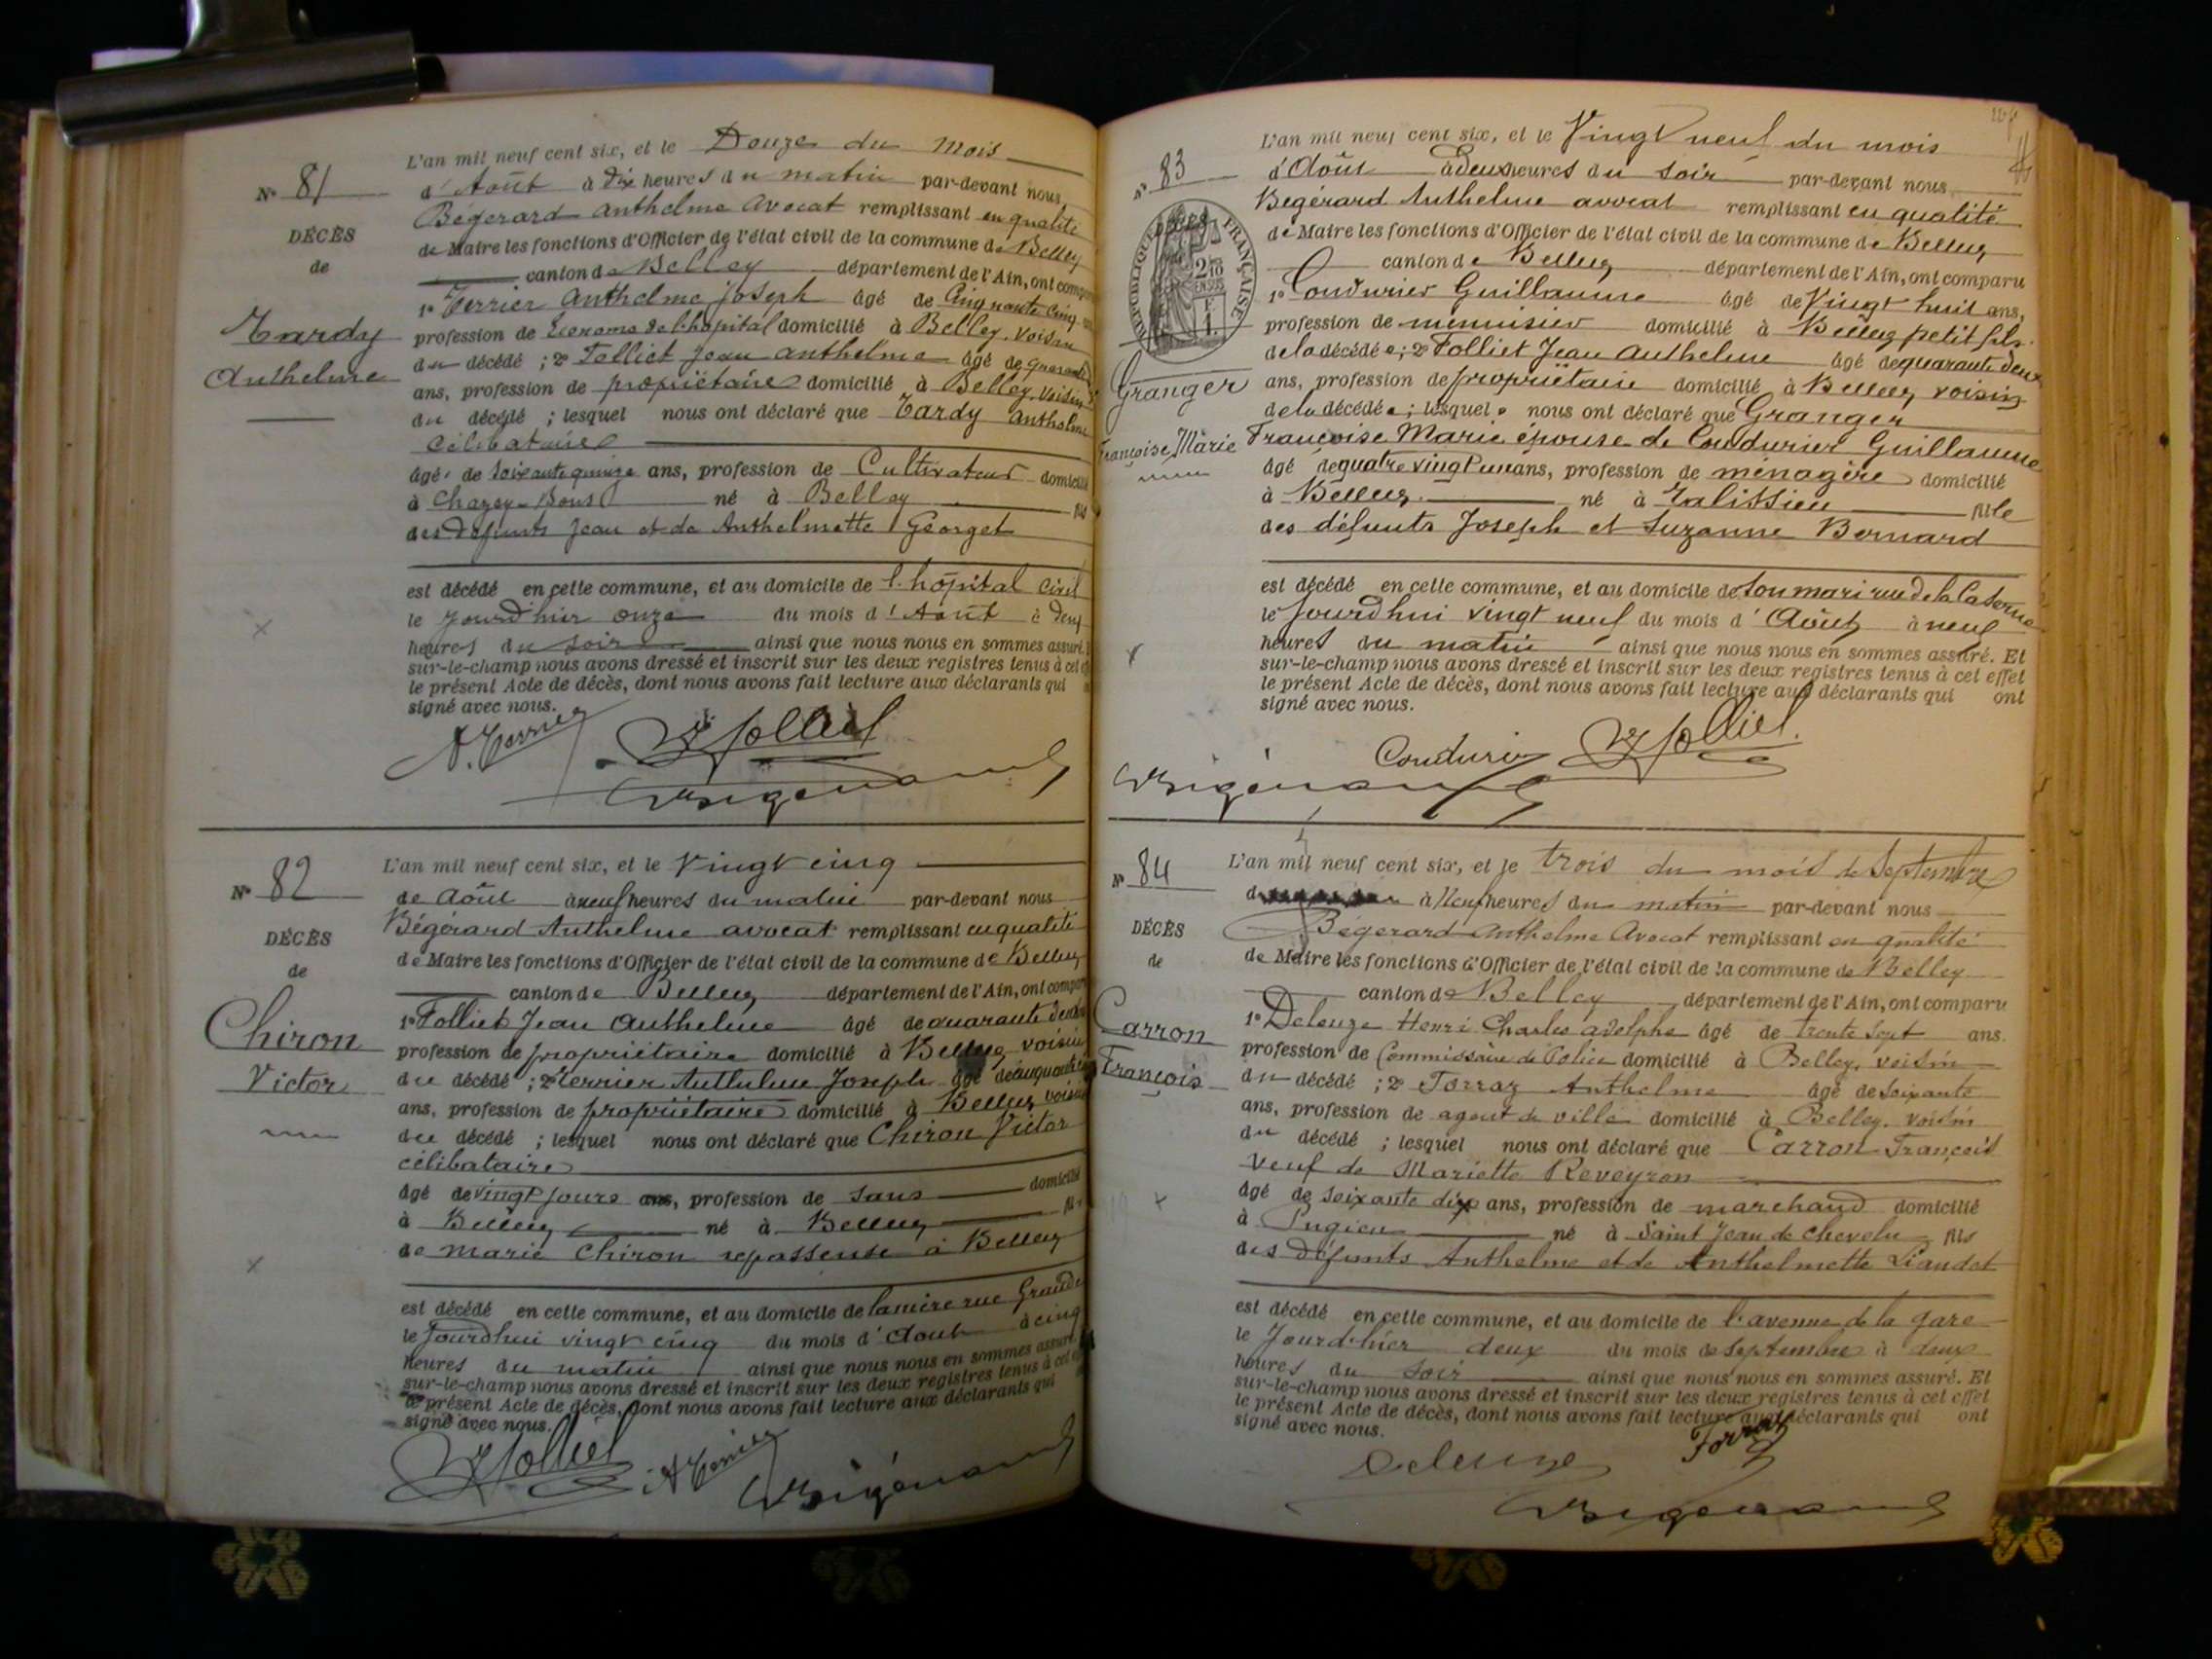 L'an mil neuf cent six, et le Douze du mois
N° 81
d'Août à dix heures du matin par-devant nous
Bégerard Anthelme Avocat remplissant en qualité
DÉCÈS
de Maire les fonctions d'Officier de l'état civil de la commune de Belley
de
canton de Belley département de l'Ain, ont comp
1° Terrier Anthelme Joseph âgé de Cinquante cinq
Tardy
profession de Econome de l'hopital domicilié à Belley, voisin
du décédé ; 2° Folliet Jean Anthelme âgé de quarante
Anthelme
ans, profession de propriétaire domicilié à Belley, voisin
du décédé ; lesquel nous ont déclaré que Tardy Anthelme
célibataire
âgé de soixante quinze ans, profession de Cultivateur domicilié
à Chazey-Bons né à Belley fils
des défunts Jean et de Anthelmette Georget
est décédé en cette commune, et au domicile de l'hôpital civil
le jourd'hier onze du mois d'Août à deux
heures du soir ainsi que nous nous en sommes assuré.
sur-le-champ nous avons dressé et inscrit sur les deux registres tenus à cet
le présent Acte de décès, dont nous avons fait lecture aux déclarants qui
signé avec nous.
A. Terrier Folliet
Bégérard
L'an mil neuf cent six, et le Vingt cinq
N° 82
de Août à neuf heures du matin par-devant nous
Bégérard Anthelme avocat remplissant en qualité
DÉCÈS
de Maire les fonctions d'Officier de l'état civil de la commune de Belley
de
canton de Belley département de l'Ain, ont compar
1° Folliet Jean Anthelme âgé de quarante deux
Chiron
profession de propriétaire domicilié à Belley voisin
Victor
du décédé ; 2° Terrier Anthelme Joseph âgé de cinquante
ans, profession de propriétaire domicilié à Belley voisin
du décédé ; lesquel nous ont déclaré que Chiron Victor
célibataire
âgé de vingt jours ans, profession de sans domicilié
à Belley né à Belley fils
de Marie Chiron repasseuse à Belley
est décédé en cette commune, et au domicile de la mère rue Grande
le jourd'hui vingt cinq du mois d'Août à cinq
heures du matin ainsi que nous nous en sommes assuré.
sur-le-champ nous avons dressé et inscrit sur les deux registres tenus à cet
le présent Acte de décès, dont nous avons fait lecture aux déclarants qui
signé avec nous.
Folliet A Terrier Bégérard
L'an mil neuf cent six, et le Vingt neuf du mois
N° 83
d'Août à deux heures du soir par-devant nous
Bégérard Anthelme avocat remplissant en qualité
DÉCÈS
RÉPUBLIQUE FRANÇAISE
2/10 EN SUS
1 F.
de Maire les fonctions d'Officier de l'état civil de la commune de Belley
canton de Belley département de l'Ain, ont comparu
1° Coudurier Guillaume âgé de Vingt huit ans,
profession de menuisier domicilié à Belley petit fils
de la décédée ; 2° Folliet Jean Anthelme âgé de quarante deux
Granger
ans, profession de propriétaire domicilié à Belley voisin
de la décédée ; lesquels nous ont déclaré que Granger
Françoise Marie
Françoise Marie épouse de Coudurier Guillaume
âgé de quatre vingt un ans, profession de ménagère domicilié
à Belley né à Talissieu fille
des défunts Joseph et Suzanne Bernard
est décédé en cette commune, et au domicile de son mari rue de la Caserne
le jourd'hui vingt neuf du mois d'Août à neuf
heures du matin ainsi que nous nous en sommes assuré. Et
sur-le-champ nous avons dressé et inscrit sur les deux registres tenus à cet effet
le présent Acte de décès, dont nous avons fait lecture aux déclarants qui ont
signé avec nous.
Coudurier Folliet
Bégérard
L'an mil neuf cent six, et le trois du mois de Septembre
N° 84
d à Neuf heures du matin par-devant nous
Bégerard Anthelme Avocat remplissant en qualité
DÉCÈS
de Maire les fonctions d'Officier de l'état civil de la commune de Belley
de
canton de Belley département de l'Ain, ont comparu
Carron
1° Deleuze Henri Charles Adolphe âgé de trente sept ans.
François
profession de Commissaire de Police domicilié à Belley, voisin
du décédé ; 2° Forraz Anthelme âgé de soixante
ans, profession de agent de ville domicilié à Belley, voisin
du décédé ; lesquel nous ont déclaré que Carron François
veuf de Mariette Reveyron
âgé de soixante dix ans, profession de marchand domicilié
à Pugieu né à Saint Jean de Chevelu fils
des défunts Anthelme et de Anthelmette Liaudet
est décédé en cette commune, et au domicile de l'avenue de la gare
le jourd'hier deux du mois de Septembre à deux
heures du soir ainsi que nous nous en sommes assuré. Et
sur-le-champ nous avons dressé et inscrit sur les deux registres tenus à cet effet
le présent Acte de décès, dont nous avons fait lecture aux déclarants qui ont
signé avec nous.
Deleuze Forraz
Bégérard